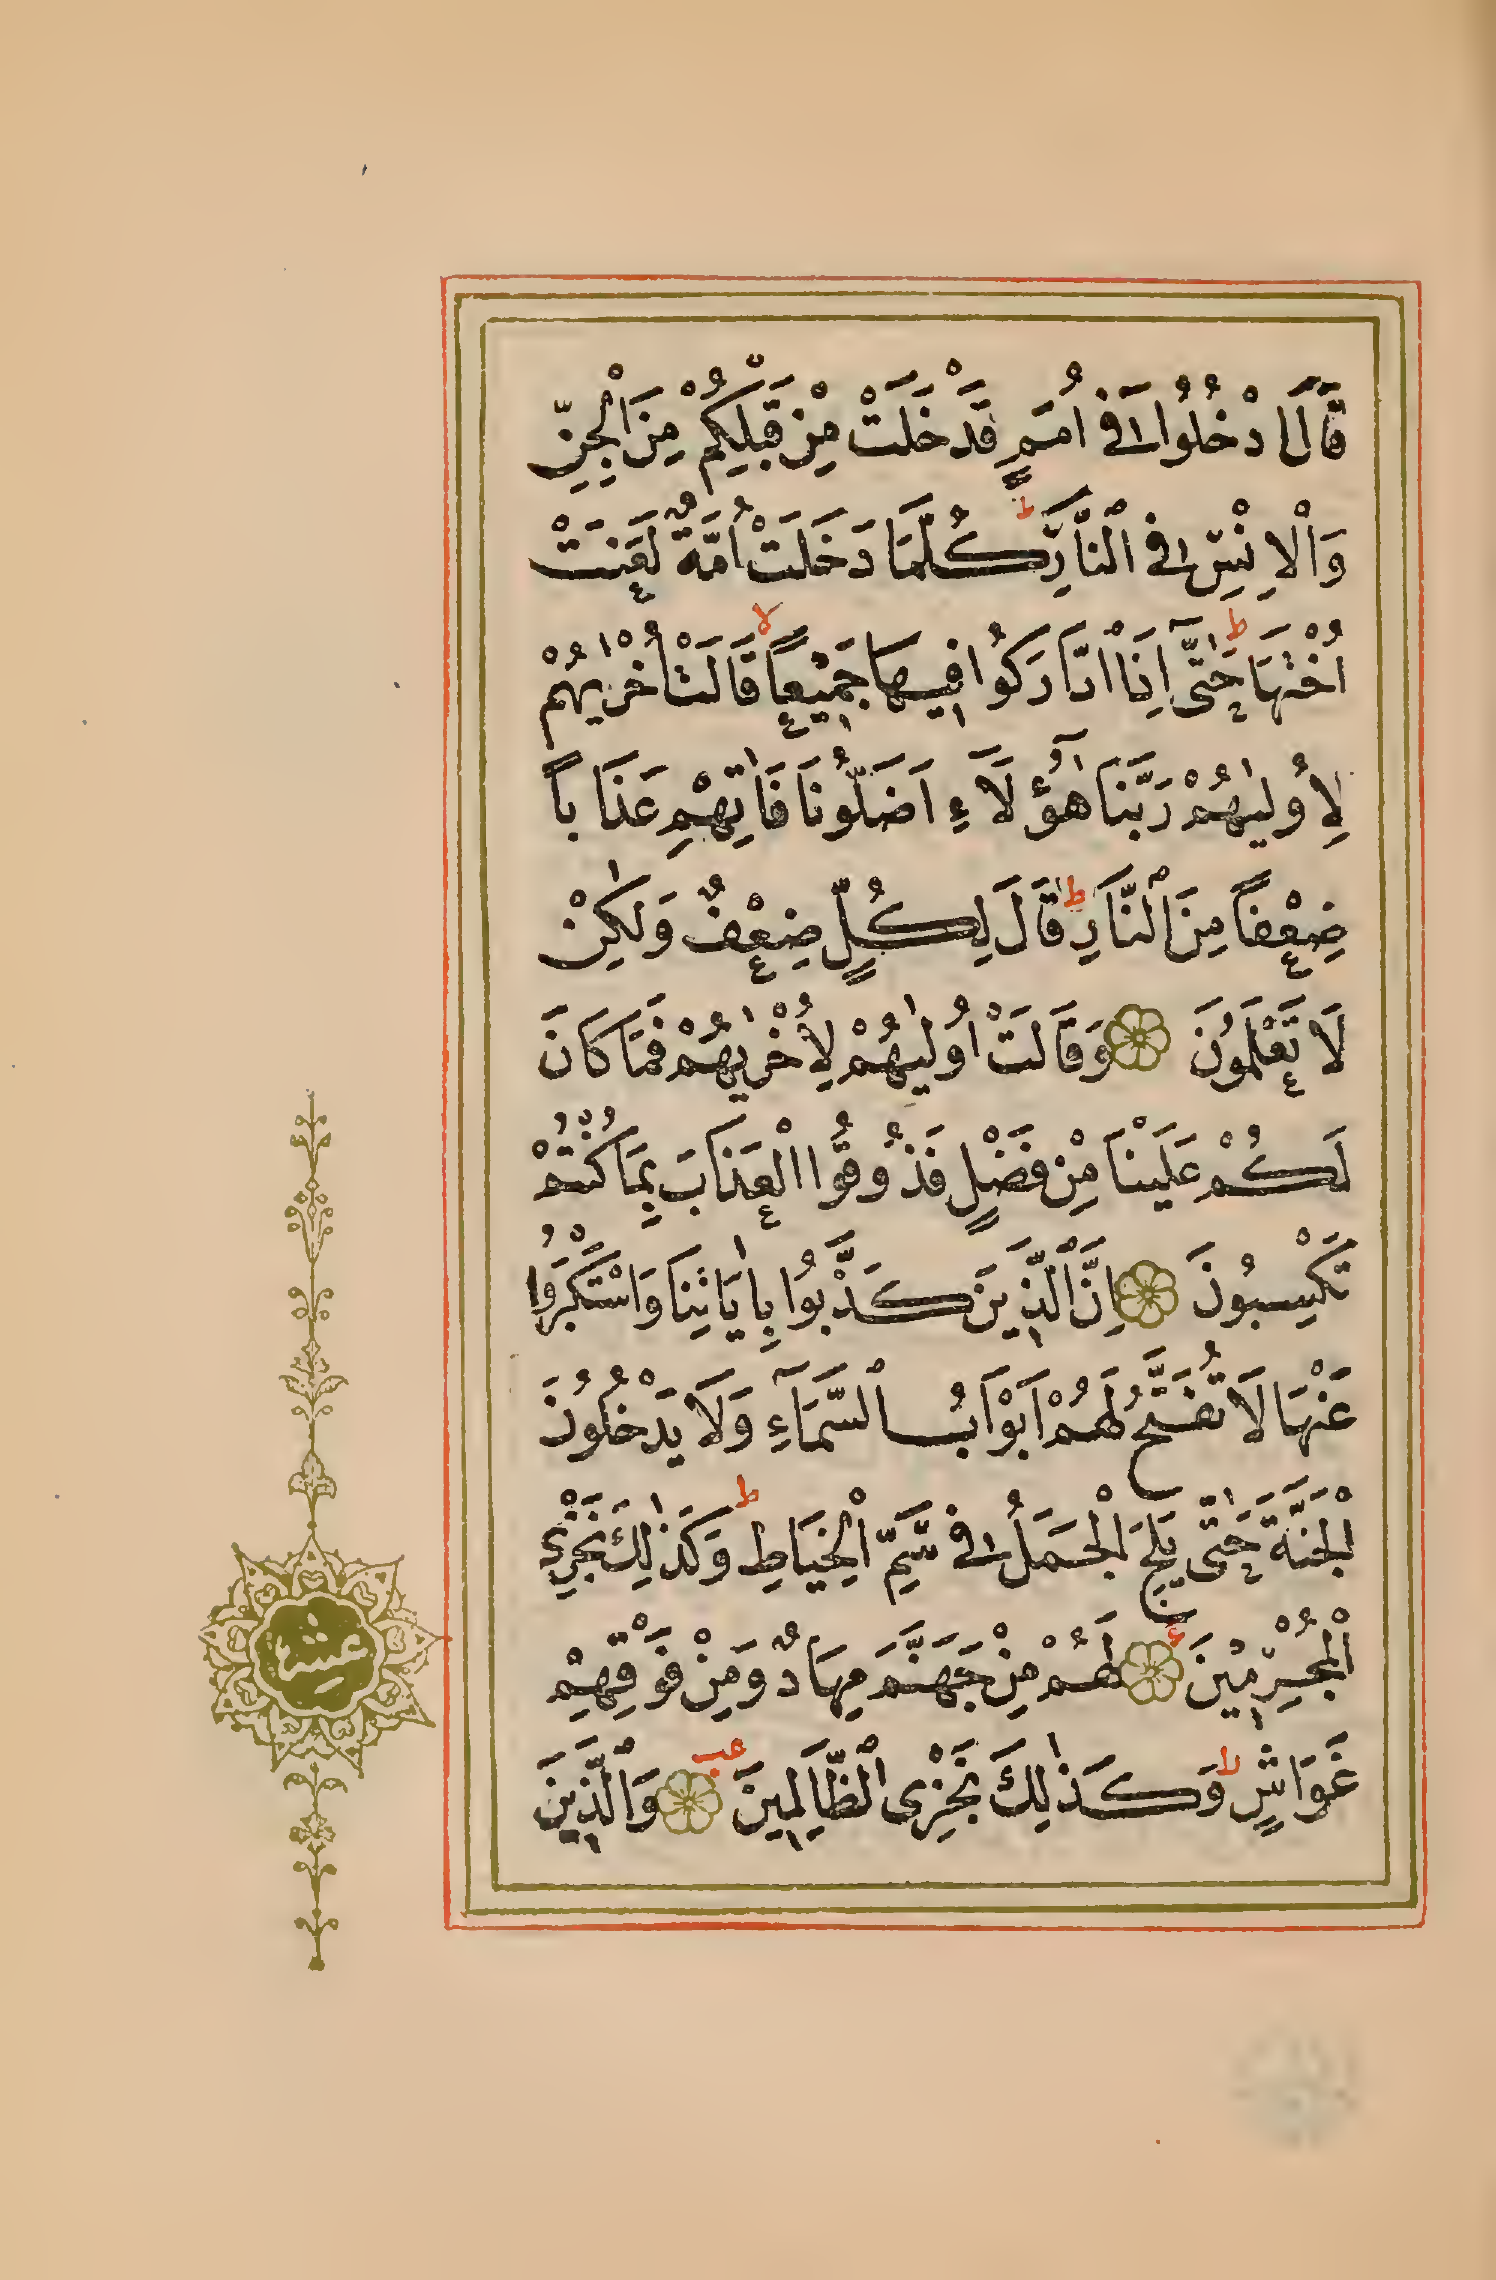 قَالَ ادْخُلُوا فِى اُمَمٍ قَدْ خَلَتْ مِنْ قَبْلِكُمْ مِنَ الْجِنِّ
وَالْاِنْسِ فِى النَّارِ ط كُلَّمَا دَخَلَتْ اُمَّةٌ لَعَنَتْ
اُخْتَهَا ط حَتّٰٓى اِذَا ادَّارَكُوا فِيهَا جَمِيعًا لا قَالَتْ اُخْرٰيهُمْ
لِاُولٰيهُمْ رَبَّنَا هٰٓؤُلَاءِ اَضَلُّونَا فَاٰتِهِمْ عَذَابًا
ضِعْفًا مِنَ النَّارِ ط قَالَ لِكُلٍّ ضِعْفٌ وَلٰكِنْ
لَا تَعْلَمُونَ وَقَالَتْ اُولٰيهُمْ لِاُخْرٰيهُمْ فَمَا كَانَ
لَكُمْ عَلَيْنَا مِنْ فَضْلٍ فَذُوقُوا الْعَذَابَ بِمَا كُنْتُمْ
تَكْسِبُونَ اِنَّ الَّذِينَ كَذَّبُوا بِاٰيَاتِنَا وَاسْتَكْبَرُوا
عَنْهَا لَا تُفَتَّحُ لَهُمْ اَبْوَابُ السَّمَآءِ وَلَا يَدْخُلُونَ
الْجَنَّةَ حَتّٰى يَلِجَ الْجَمَلُ فِى سَمِّ الْخِيَاطِ ط وَكَذٰلِكَ نَجْزِى
الْمُجْرِمِينَ لَهُمْ مِنْ جَهَنَّمَ مِهَادٌ وَمِنْ فَوْقِهِمْ
غَوَاشٍ ط وَكَذٰلِكَ نَجْزِى الظَّالِمِينَ عب وَالَّذِينَ